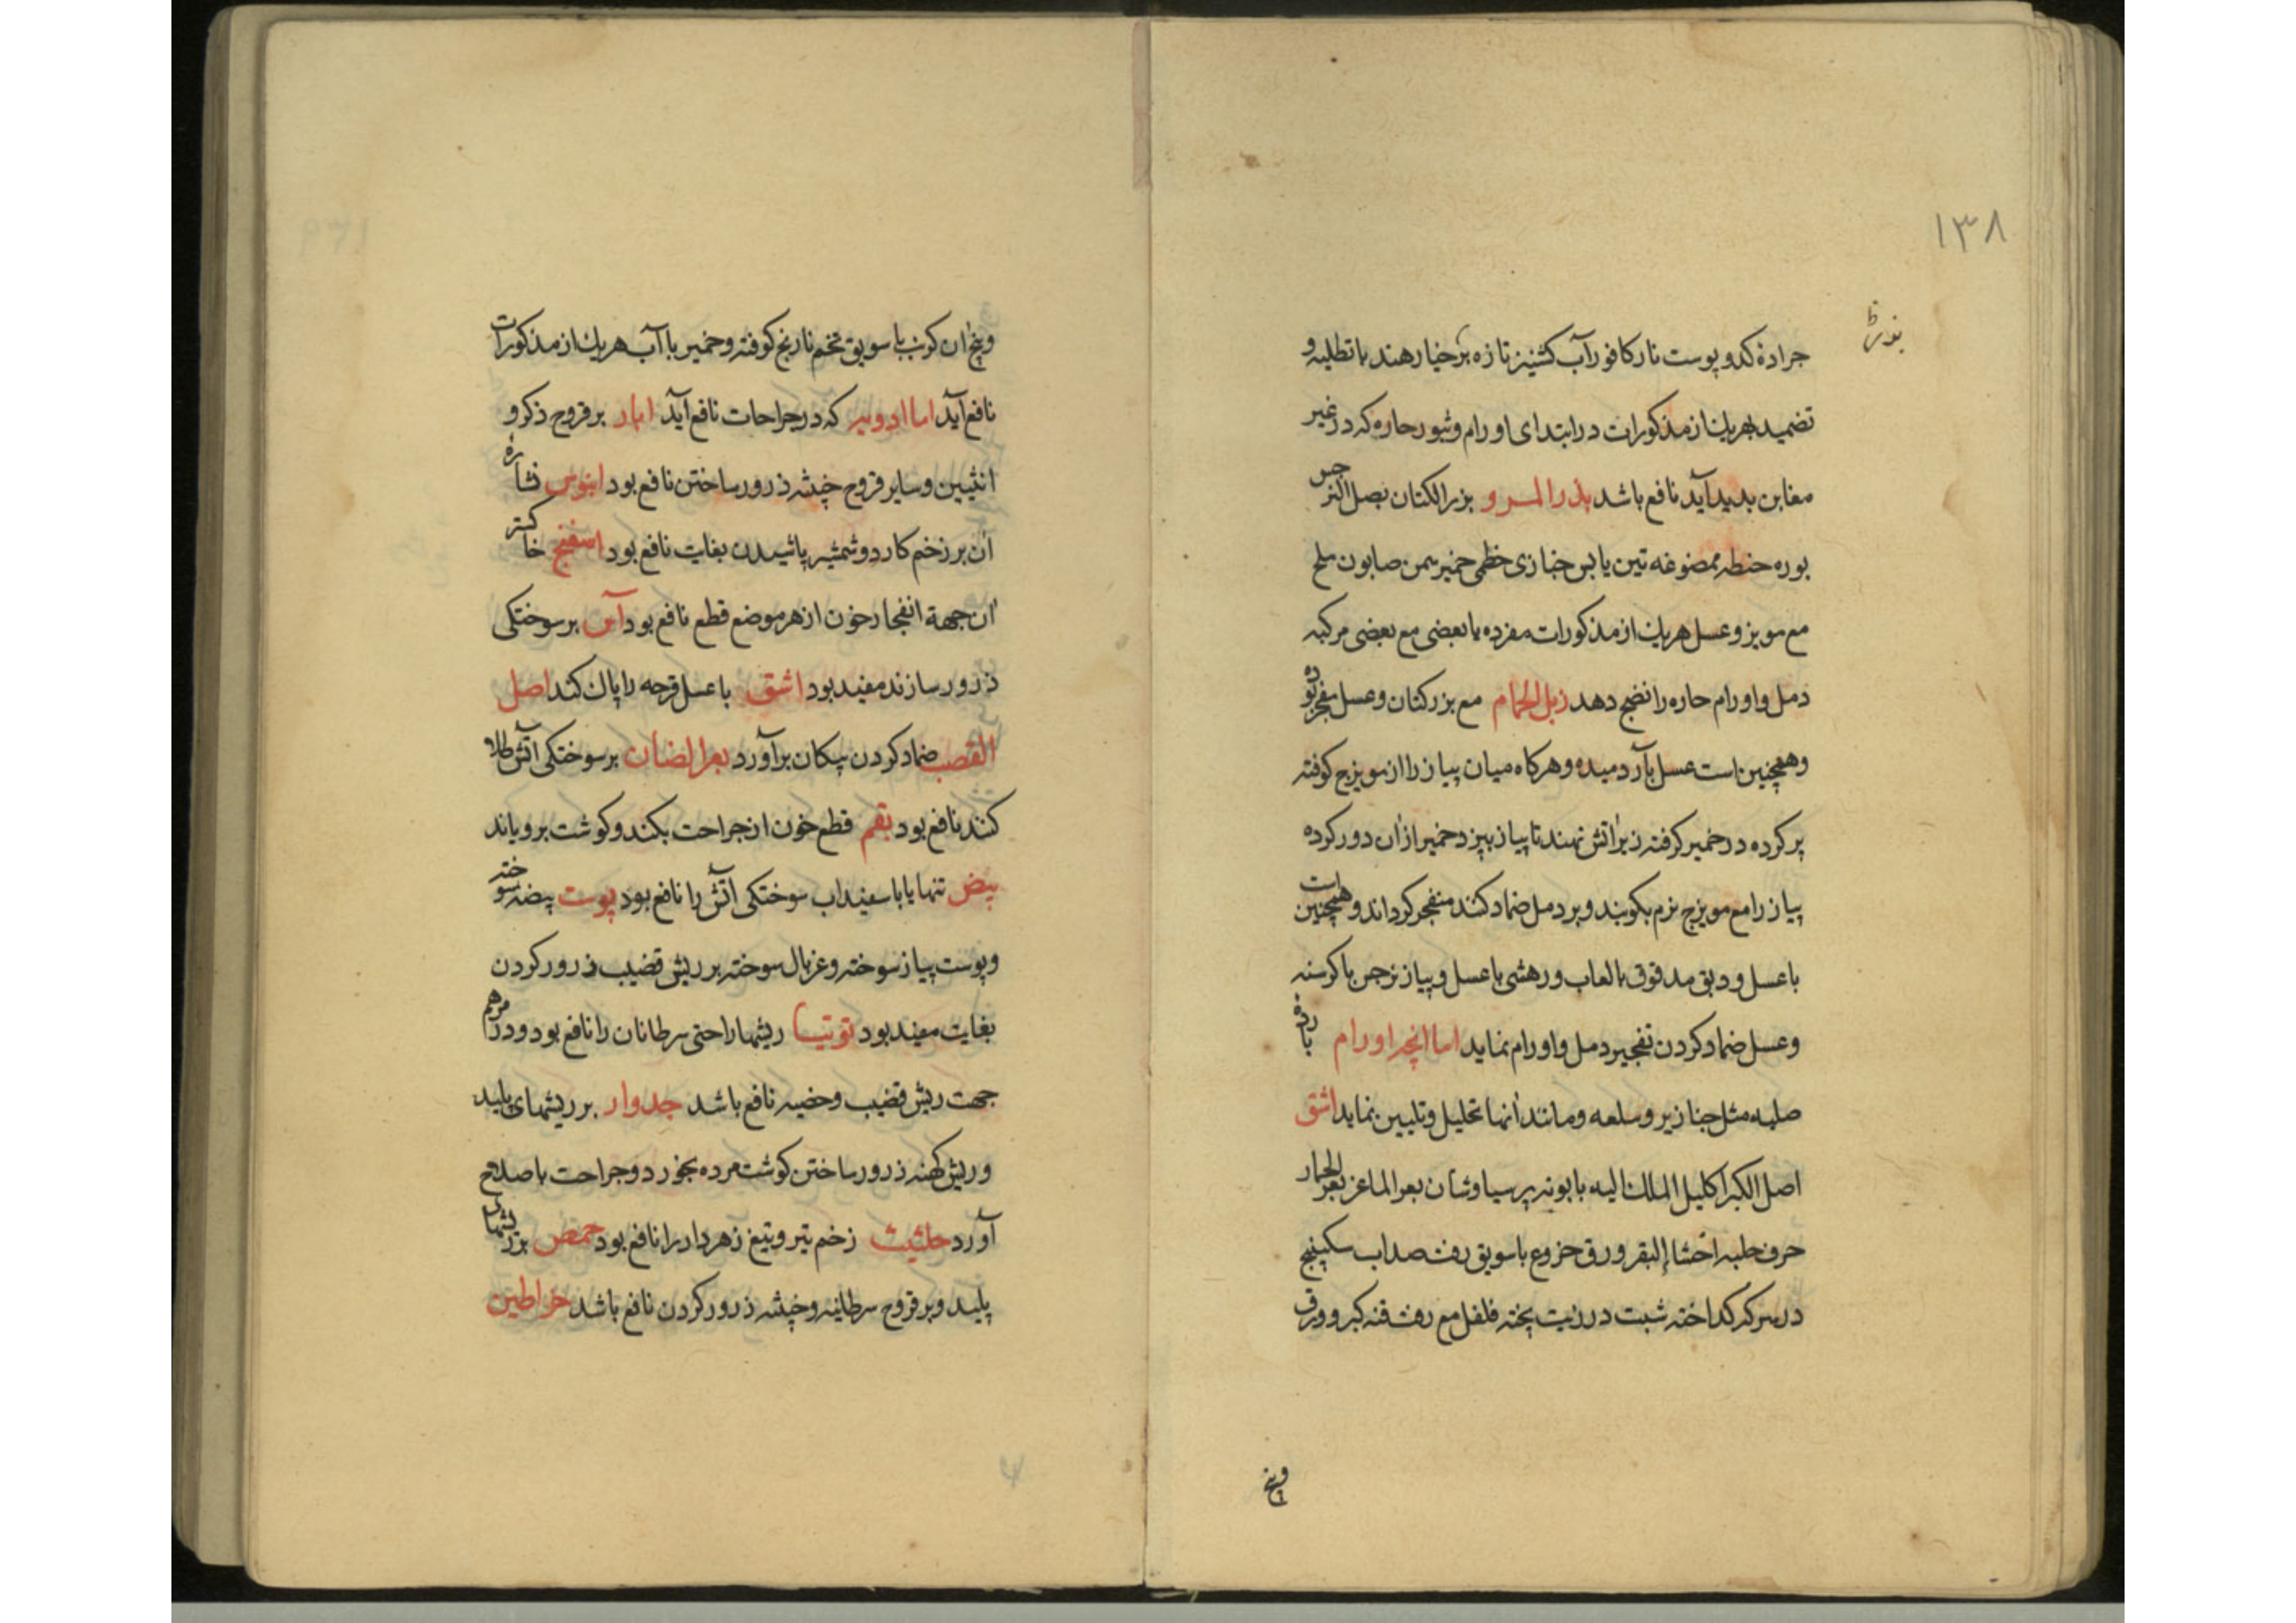 ۱۳۸
جرادهٔ کدو پوست نار کافور آب کشنیز تازه خیار هند با تطلیه و
تضمید بهریك از مذکورات در ابتدای اورام و بثور حاره که در غیر
مغابن بدید آید نافع باشد بذر المرو بزر الکتان بصل النرجس
بوره حنطه ممضوغه تین یابس خبازی خطمی خمیر سمن صابون ملح
مع مویز و عسل هریك از مذکورات مفرده یا بعضی مع بعضی مرکبه
دمل و اورام حاره را نضج دهد زبل الحمام مع بزر کتان و عسل
وهمچنین است عسل با آرد میده و هرکاه میان پیاز را از مویزج کوفته
پر کرده در خمیر کرفته زیر اتش نهند تا پیاز بپزد خمیر از ان دور کرده
پیاز را مع مویزج نرم بکوبند و بر دمل ضماد کنند منفجر کرداند و همچنین است
با عسل و دبق مدقوق با لعاب و رهشی با عسل و پیاز نرجس با کرسنه
و عسل ضماد کردن تفجیر دمل و اورام نماید اما انچه اورام بارده
صلبه مثل خنازیر و سلعه و مانند انها تحلیل و تلیین نماید اشق
اصل الکبر اکلیل الملك الیه بابونه پرسیاوشان بعر الماعز بعر الحمار
حرف حلبه اخثاء البقر ورق خروع با سویق زفت صداب سکبینج
در سرکه کداخته شبت در زیت پخته فلفل مع زفت قنه کبر و ورق
وبیخ
وبیخ ان کرنب با سویق تخم نارنج کوفته و خمیر با آب هریك از مذکورات
نافع آید اما ادویه که در جراحات نافع آید ابار بر قروح ذکر و
انثیین و سایر قروح خبیثه ذرور ساختن نافع بود ابنوس نشاره
ان بر زخم کارد و شمشیر پاشیدن بغایت نافع بود اسفنج خاکستر
ان جهة انفجار خون از هر موضع قطع نافع بود آس بر سوختکی
ذرور سازند مفید بود اشق با عسل قرحه را پاك کند اصل
القصب ضماد کردن پیکان برآورد بعر الضان بر سوختکی آتش طلا
کنند نافع بود بقم قطع خون از جراحت بکند و کوشت برویاند
بیض تنها یا با سفیداب سوختکی آتش را نافع بود پوست بیضه سوخته
و پوست پیاز سوخته و غربال سوخته بر ریش قضیب ذرور کردن
بغایت مفید بود توتیا ریشها را حتی سرطانان را نافع بود و در مرهم
جهت ریش قضیب و خصیه نافع باشد جدوار بر ریشهای پلید
و ریش کهنه ذرور ساختن کوشت مرده بخورد و جراحت باصلاح
آورد حلتیت زخم تیر و تیغ زهردار را نافع بود حمص بر ریشهای
پلید و بر قروح سرطانیه و خبیثه ذرور کردن نافع باشد خراطین